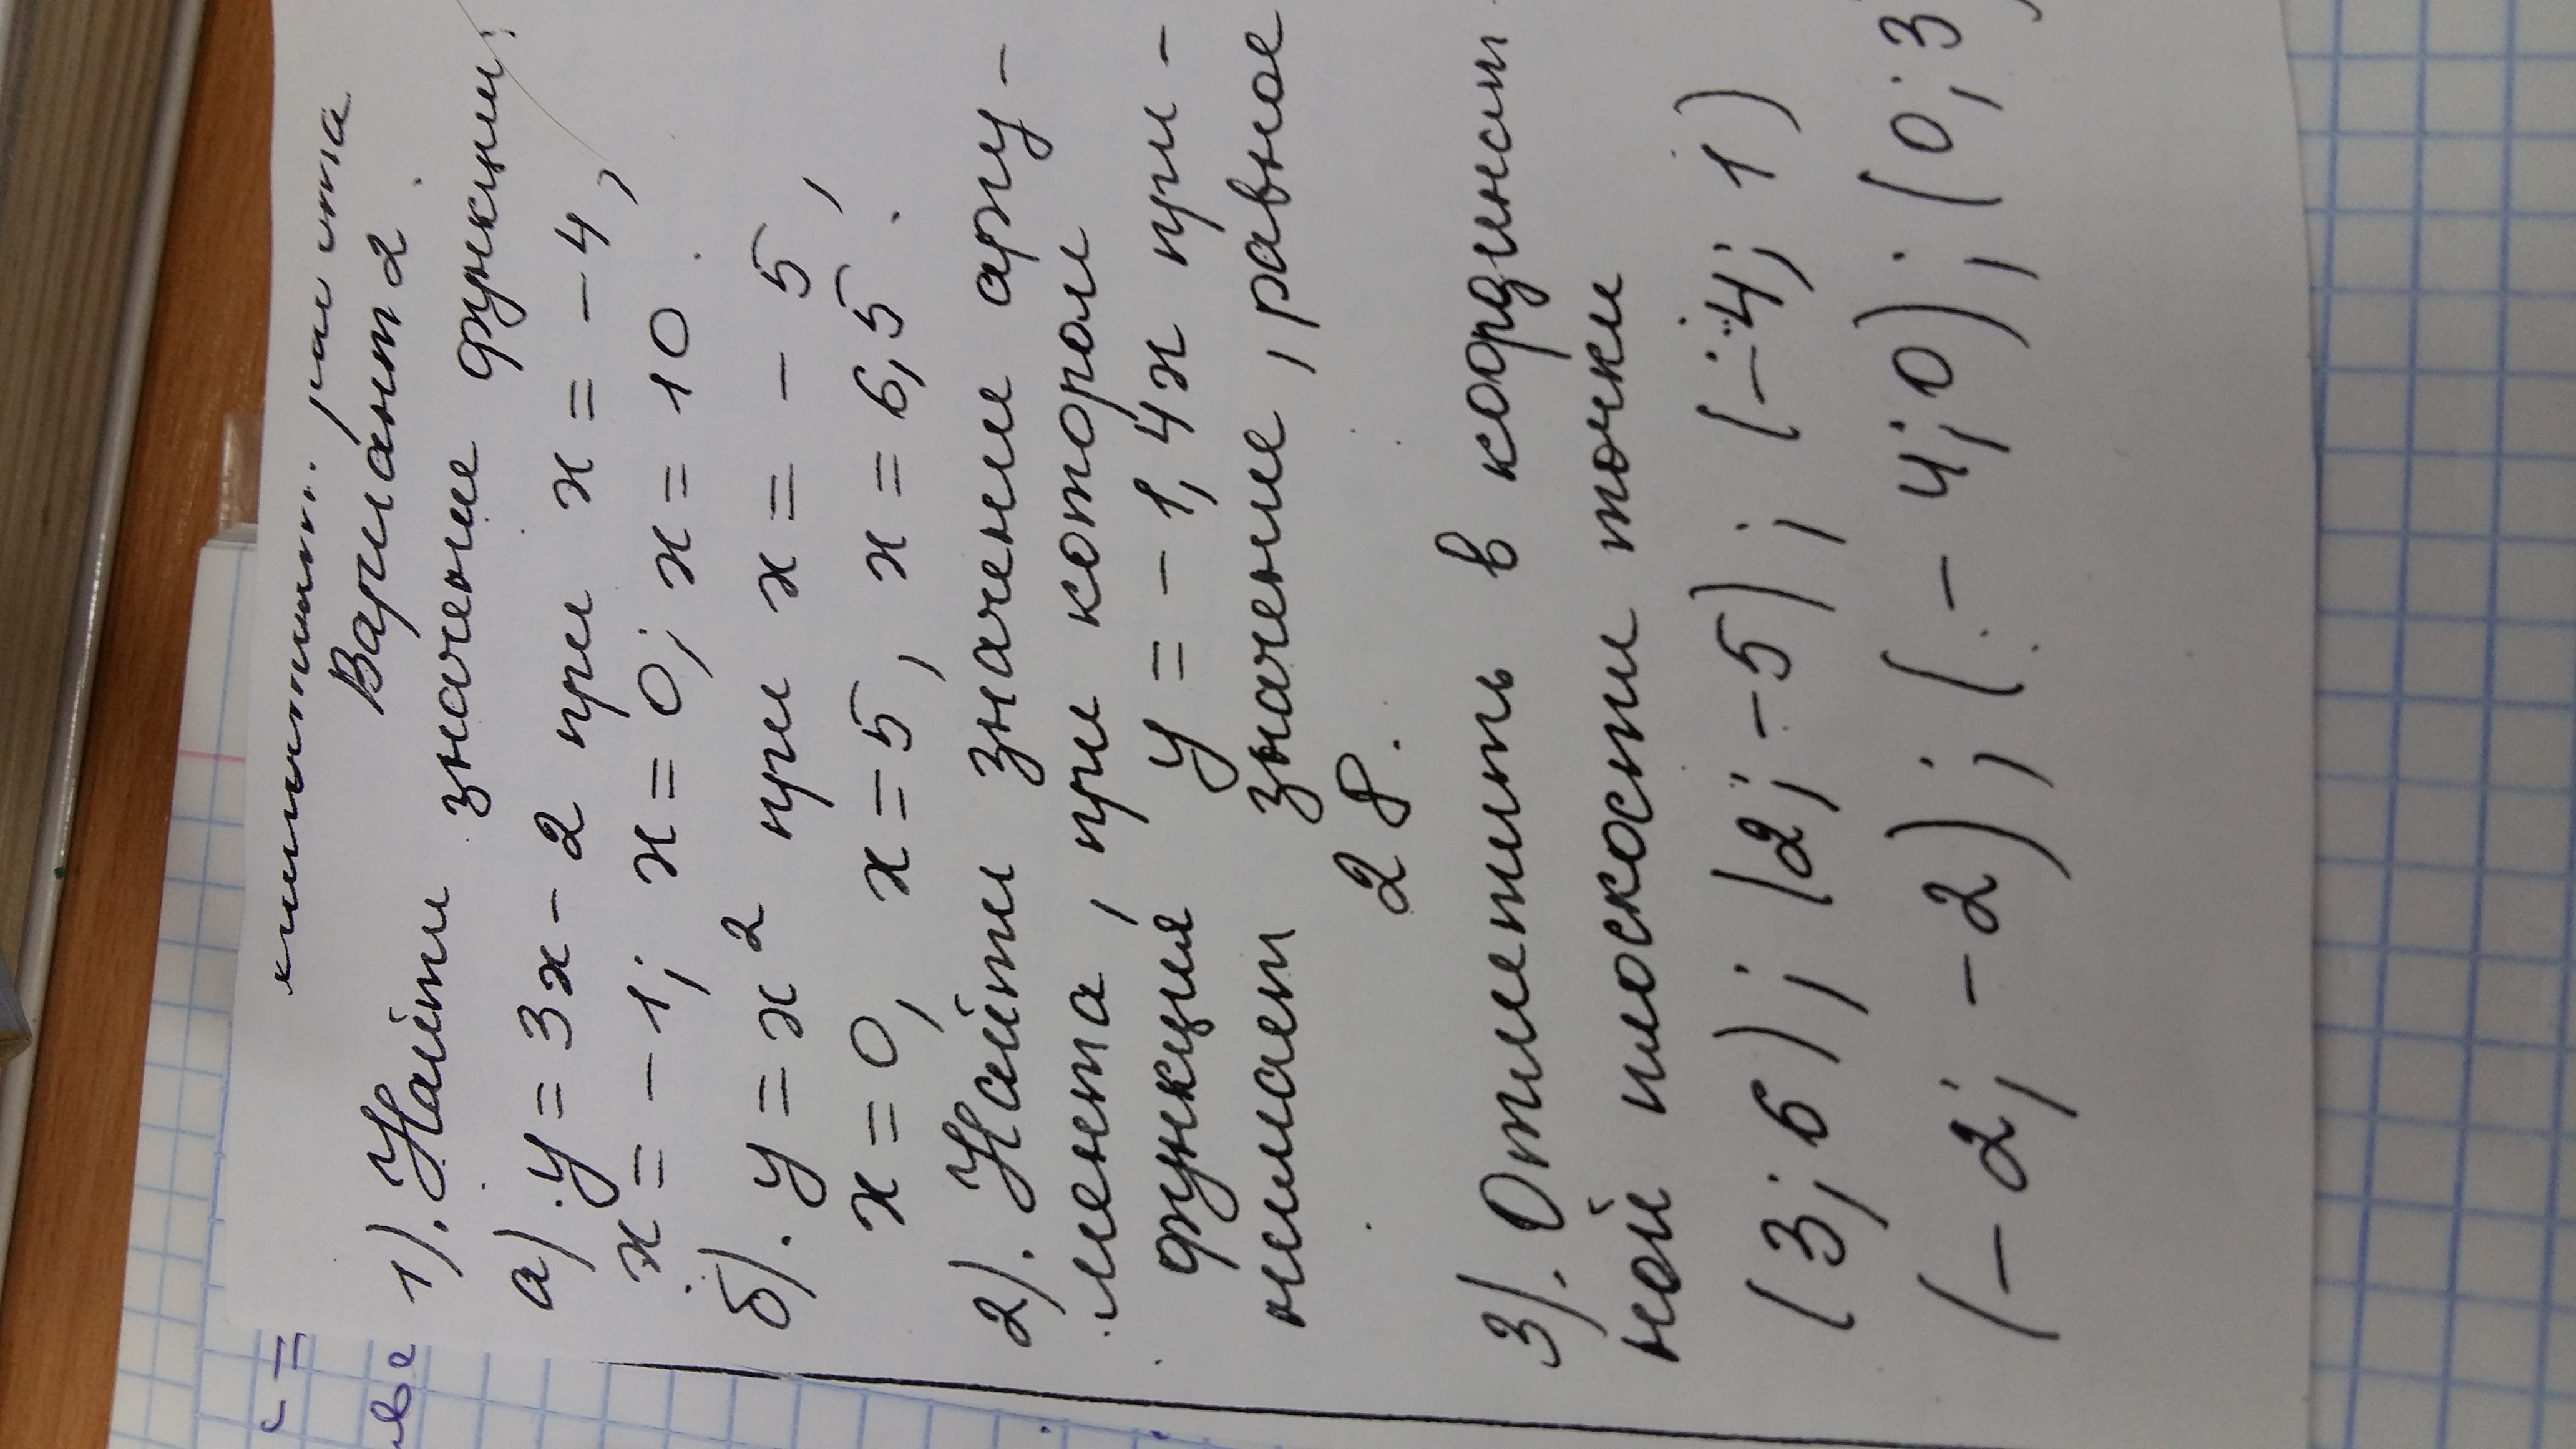 Вариант 2.
1). Найти значение функции:
а). y = 3x - 2 при x = -4,
x = -1; x = 0; x = 10.
б). y = x² при x = -5,
x = 0, x = 5, x = 6,5.
2). Найти значение аргу-
мента, при котором
функция y = -1,4x при-
нимает значение, равное
28.
3). Отметить в координат-
ной плоскости точки
(3; 6); (2; -5); (-4; 1)
(-2; -2); (-4; 0); (0; 3)